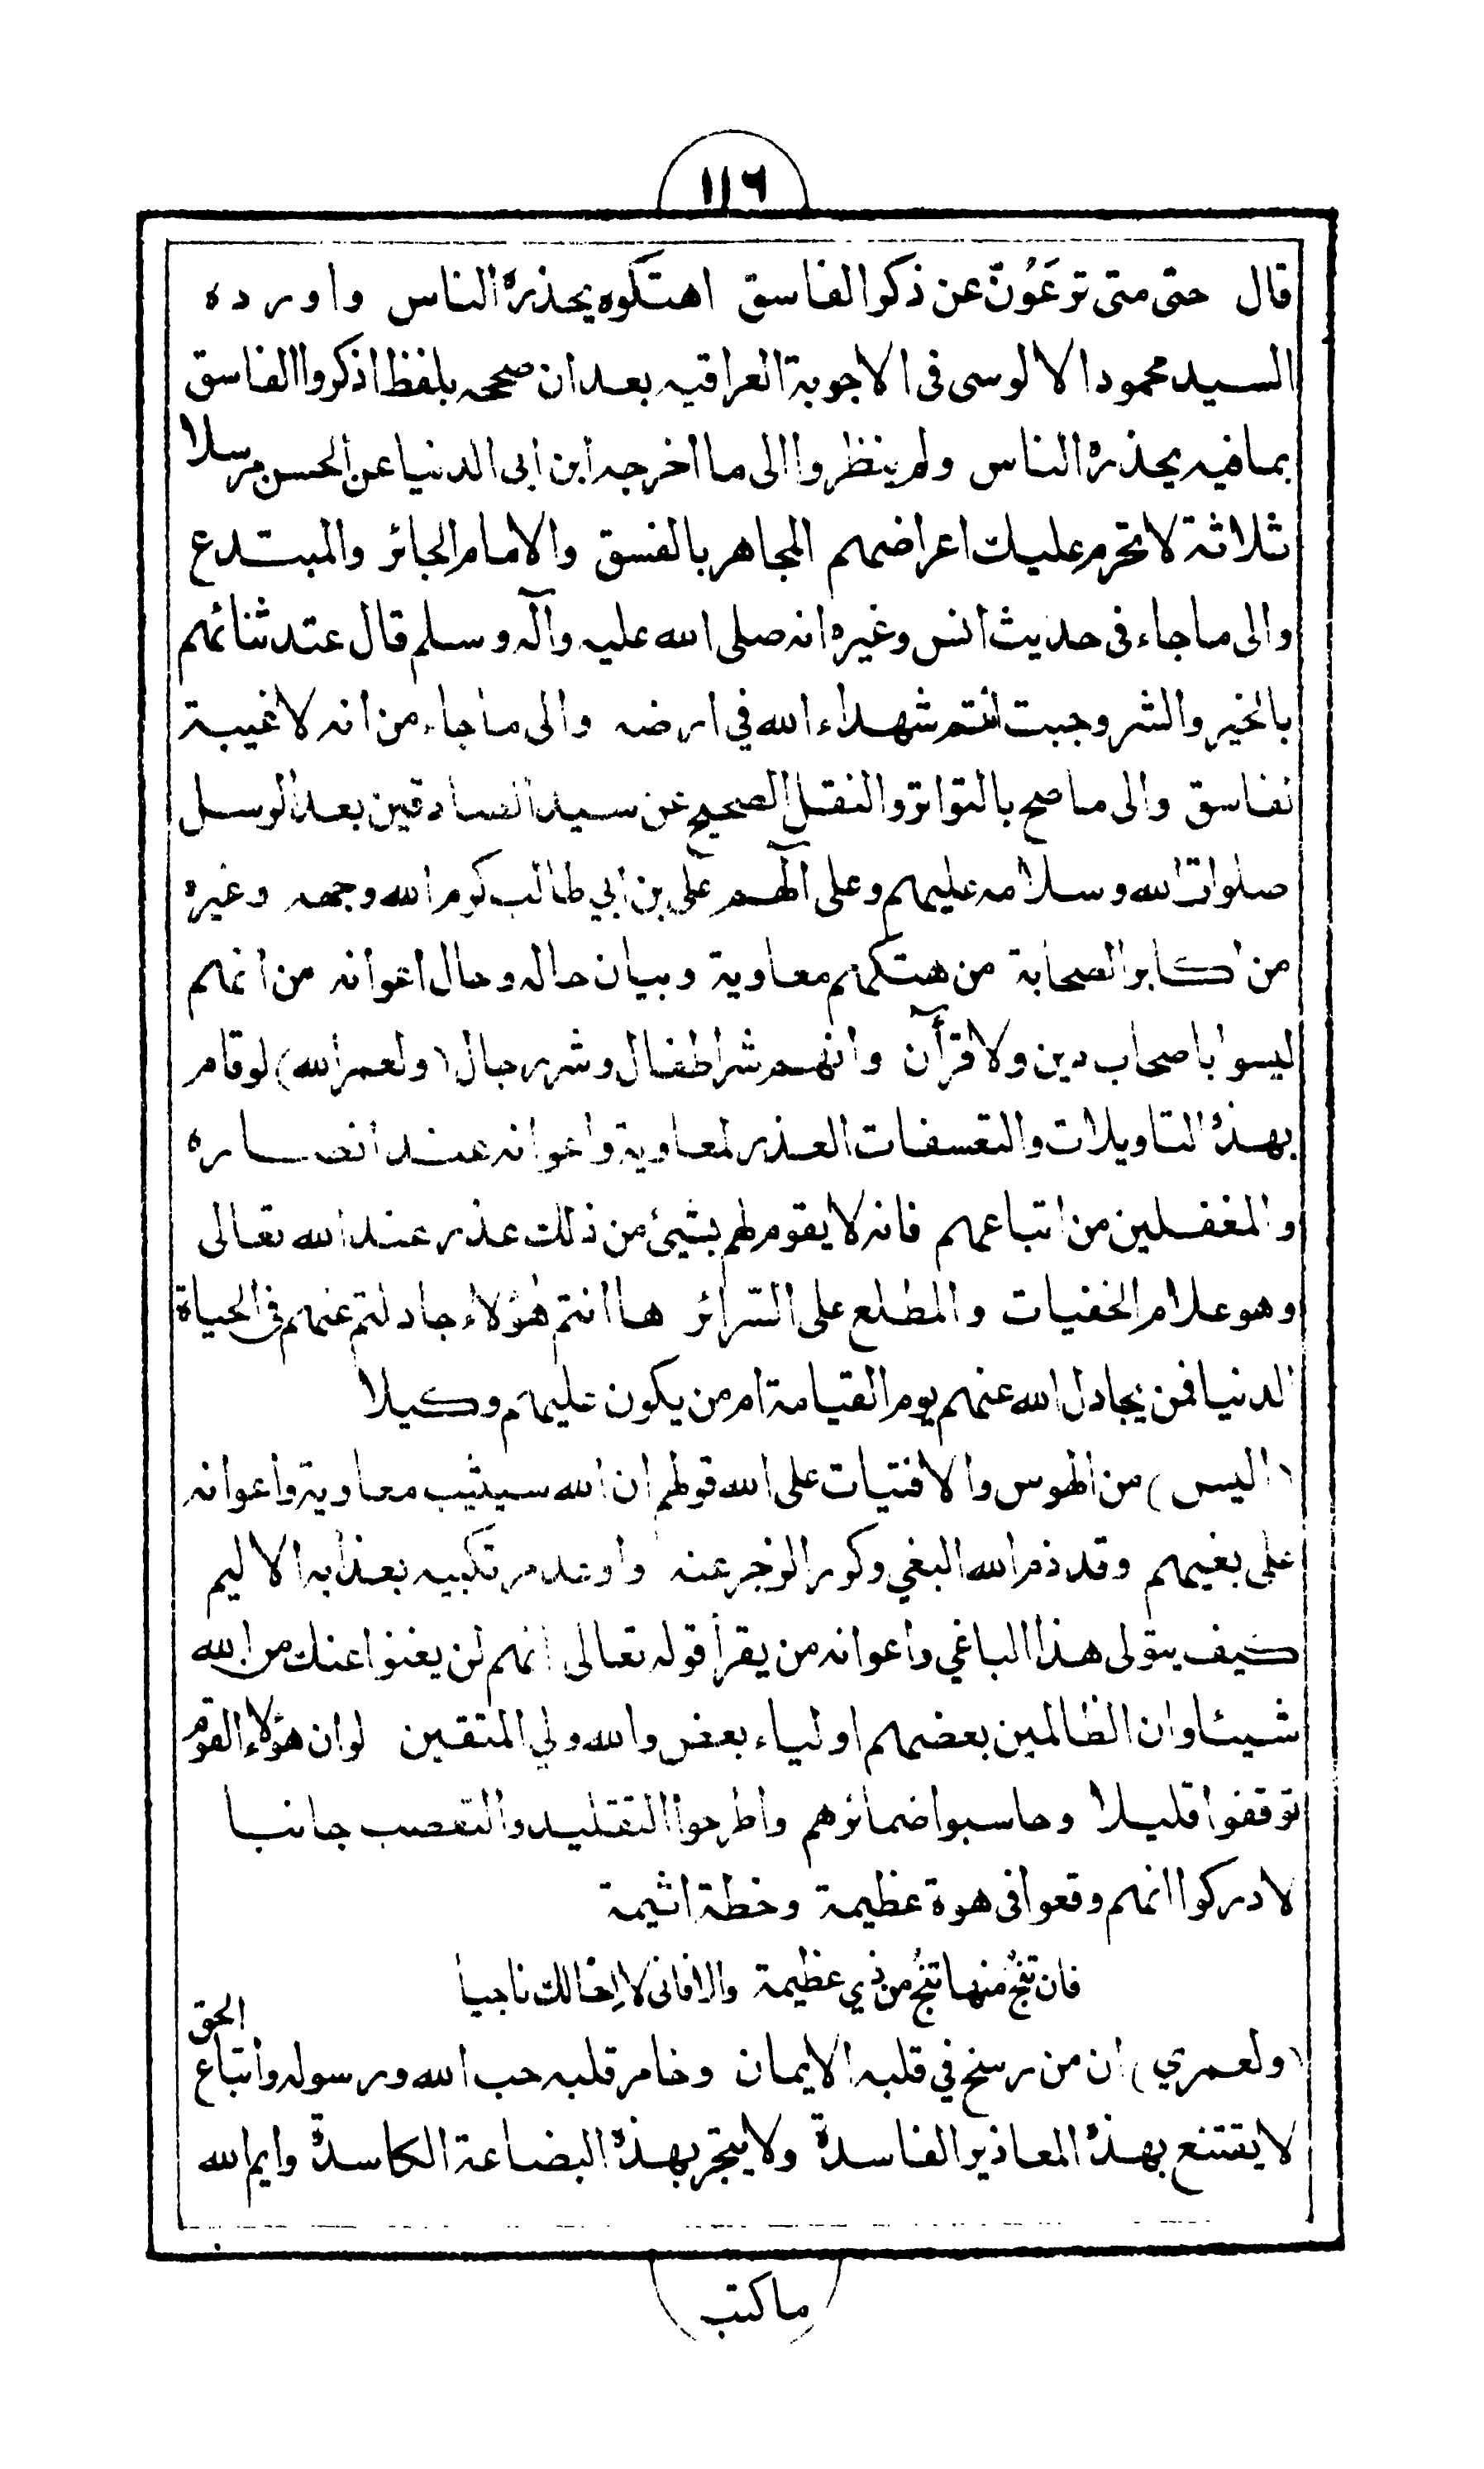 ١١٦
قال حتى متى ترعَوُنّ عن ذكر الفاسق اهتكوه يحذره الناس واورده
السيد محمود الالوسى فى الاجوبة العراقيه بعد ان صححه بلفظ اذكروا الفاسق
بما فيه يحذره الناس ولم ينظروا الى ما اخرجه ابن ابى الدنيا عن الحسن مرسلا
ثلاثة لا تحرم عليك اعراضهم المجاهر بالفسق والامام الجائر والمبتدع
والى ما جاء فى حديث انس وغيره انه صلى الله عليه وآله وسلم قال عند ثنائهم
بالخير والشر وجبت انتم شهداء الله في ارضه والى ما جاء من انه لا غيبة
لفاسق والى ما صح بالتواتر والنقل الصحيح عن سيد الصادقين بعد الرسل
صلوات الله وسلامه عليهم وعلى آلهم على بن ابي طالب كرم الله وجهه وغيره
من اكابر الصحابة من هتكهم معاوية وبيان حاله وحال اعوانه من انهم
ليسوا باصحاب دين ولا قرآن وانهم شر اطفال وشر رجال (ولعمر الله) لو قام
بهذه التاويلات والتعسفات العذر لمعاوية واعوانه عند انصاره
والمغفلين من اتباعهم فانه لا يقوم لهم بشيئ من ذلك عذر عند الله تعالى
وهو علام الخفيات والمطلع على السّرائر ها انتم هؤلاء جادلتم عنهم فى الحياة
الدنيا فمن يجادل الله عنهم يوم القيامة ام من يكون عليهم وكيلا
(اليس) من الهوس والافتيات على الله قولهم ان الله سيثيب معاوية واعوانه
على بغيهم وقد ذم الله البغي وكرر الزجر عنه واوعد مرتكبيه بعذابه الاليم
كيف يتولى هذا الباغي واعوانه من يقرأ قوله تعالى انهم لن يغنوا عنك من الله
شيئا وان الظالمين بعضهم اولياء بعض والله ولي المتقين لو ان هؤلاء القوم
توقفوا قليلا وحاسبوا ضمائرهم واطرحوا التقليد والتعصب جانبا
لادركوا انهم وقعوا فى هوة عظيمة وخطة اثيمة
فان تنجُ منها تنجُ من ذي عظيمة والا فانى لا اِخالك ناجيا
(ولعمري) ان من رسخ في قلبه الايمان وخامر قلبه حب الله ورسوله واتباع الحق
لا يقتنع بهذه المعاذير الفاسدة ولا يتجر بهذه البضاعة الكاسدة وايم الله
ما كتب